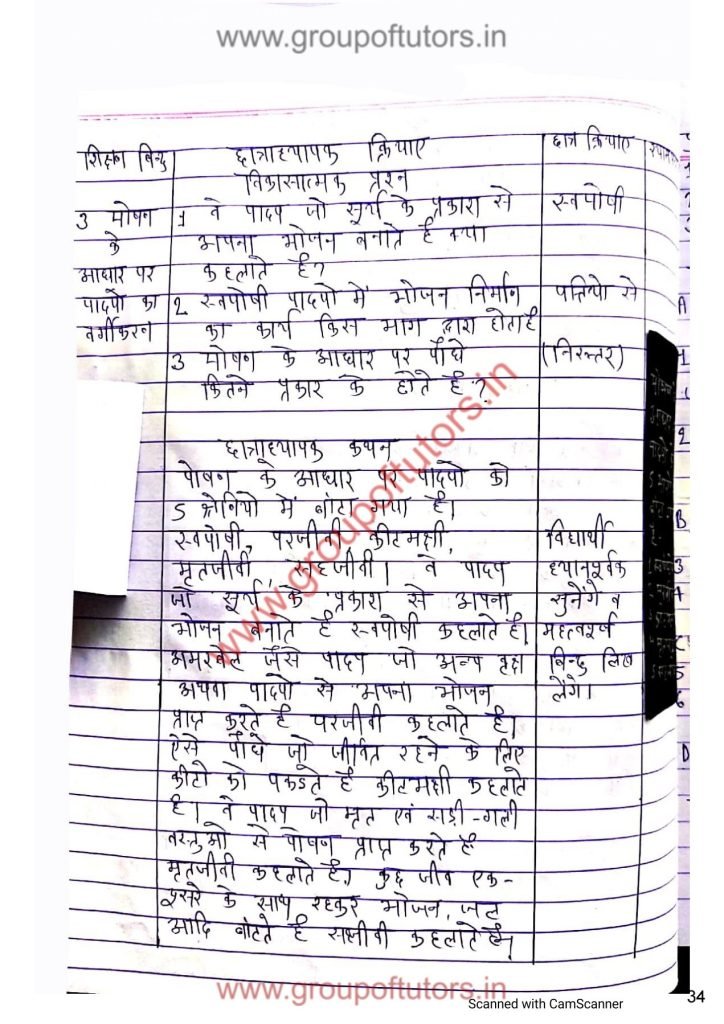 www.groupoftutors.in
शिक्षण बिन्दु छात्राध्यापक क्रियाए छात्र क्रियाए
विकासात्मक प्रश्न
3 पोषण 1 वे पादप जो सूर्य के प्रकाश से स्वपोषी
के अपना भोजन बनाते है क्या
आधार पर कहलाते है?
पादपो का 2 स्वपोषी पादपो में भोजन निर्मान पत्तियो से
वर्गीकरन का कार्य किस भाग द्वारा होता है
3 पोषण के आधार पर पौधे (निरन्तर)
कितने प्रकार के होते है?
छात्राध्यापक कथन
पोषण के आधार पर पादपो को
5 श्रेनियो में बांटा गया है।
स्वपोषी, परजीवी, कीटभक्षी, विद्यार्थी
मृतजीवी, सहजीवी। वे पादप ध्यानपूर्वक
जो सूर्य के प्रकाश से अपना सुनेंगे व
भोजन बनाते है स्वपोषी कहलाते है। महत्वपूर्ण
अमरबेल जैसे पादप जो अन्य वृक्ष बिन्दु लिख
अथवा पादपो से अपना भोजन लेंगे।
प्राप्त करते है परजीवी कहलाते है।
ऐसे पौधे जो जीवित रहने के लिए
कीटो को पकडते है कीटभक्षी कहलाते
है। वे पादप जो मृत एवं सडी-गली
वस्तुओ से पोषन प्राप्त करते है
मृतजीवी कहलाते है। कुछ जीव एक-
दूसरे के साथ रहकर भोजन, जल
आदि बांटते है कहलाते है।
www.groupoftutors.in
www.groupoftutors.in
Scanned with CamScanner
34